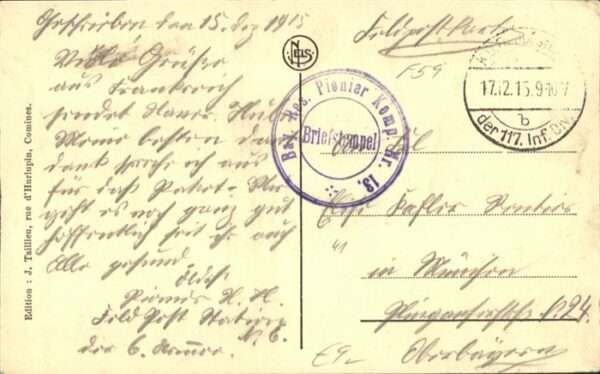 Geschrieben den 15. Dez 1915
Viele Grüße
aus Frankreich
sendet Xaver
Meine besten
dank spreche ich aus
für das Paket. Mir
geht es noch ganz gut
hoffentlich seit ihr auch
Alle gesund.
Pionier X. H.
Feld Post Station
N. 6.
der 6. Armee.
Feldpostkarte
F59
17.12.15.9-10V
b
der 117. Inf. Div.
Bay. Res. Pionier Komp. Nr. 13.
Briefstempel
NELS
41
in München
№ 24.
Oberbayern
Edition : J. Taillieu, rue d'Hurlupin, Comines.